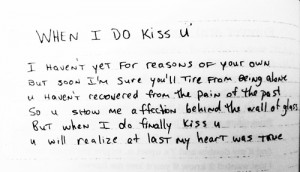 WHEN I DO KISS U
I HAVEN'T YET FOR REASONS OF YOUR OWN
BUT SOON I'M SURE YOU'LL TIRE FROM BEING ALONE
U HAVEN'T RECOVERED FROM THE PAIN OF THE PAST
SO U SHOW ME AFFECTION BEHIND THE WALL OF GLASS
BUT WHEN I DO FINALLY KISS U
U WILL REALIZE AT LAST MY HEART WAS TRUE